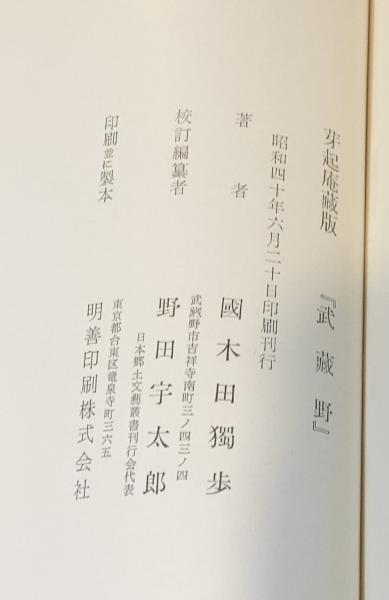 芽起庵蔵版 『武藏野』
昭和四十年六月二十日印刷刊行
著者 國木田獨歩
武蔵野市吉祥寺南町三ノ四三ノ四
校訂編纂者 野田宇太郎
日本郷土文藝叢書刊行会代表
東京都台東区竜泉寺町三六五
印刷並に製本 明善印刷株式会社